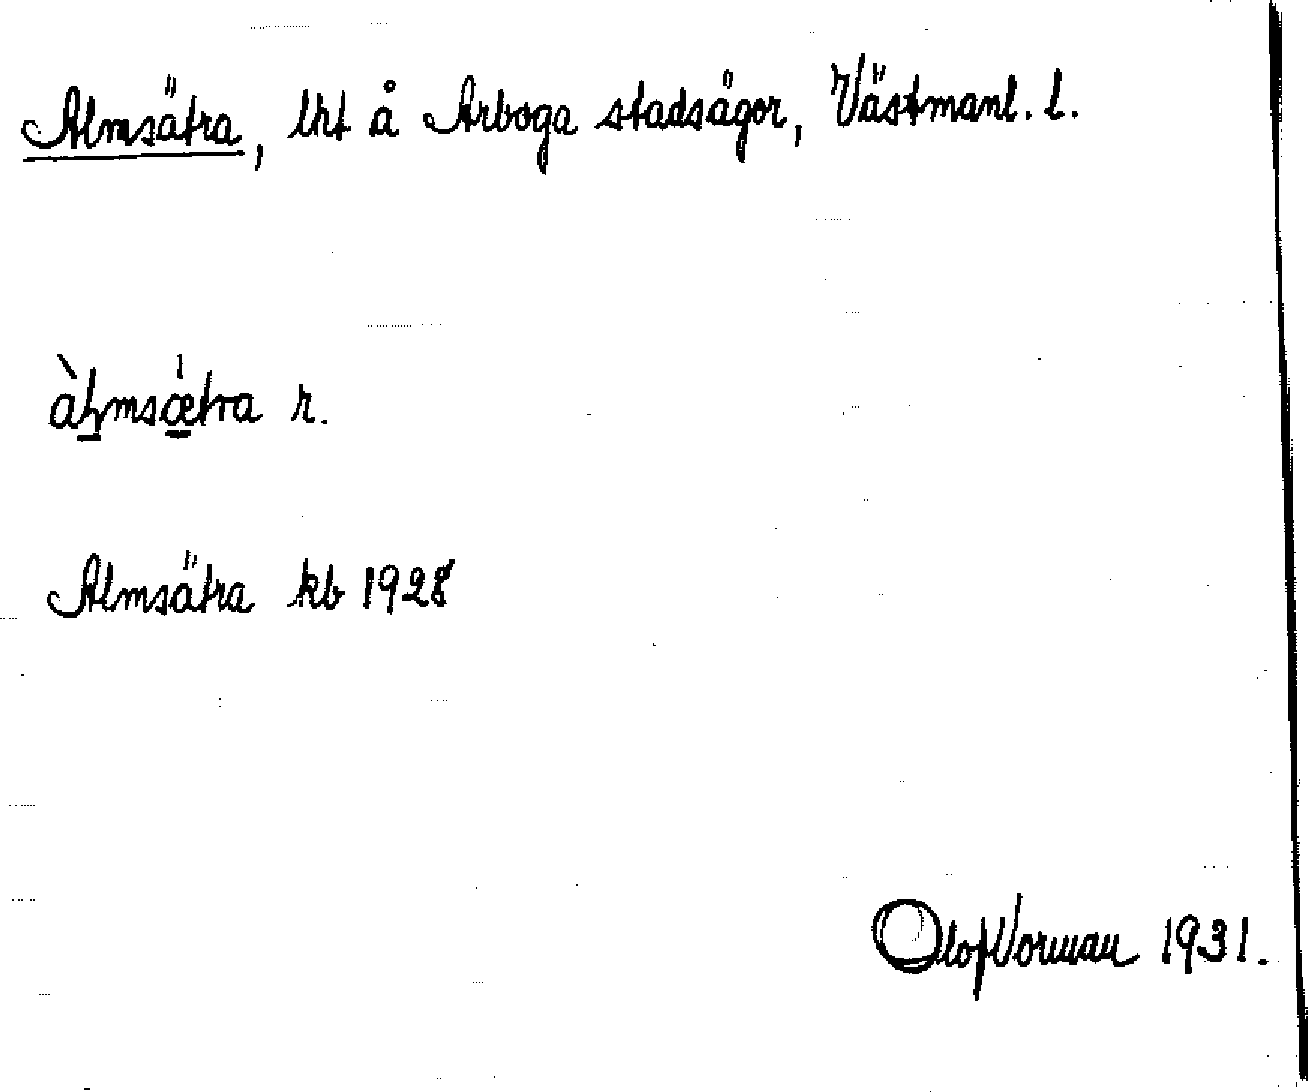 Almsätra, lht å Arboga stadsägor, Västmanl. l.
àɫ̱msǽ̱tra r.
Almsätra kb 1928
Olof Vorman 1931.